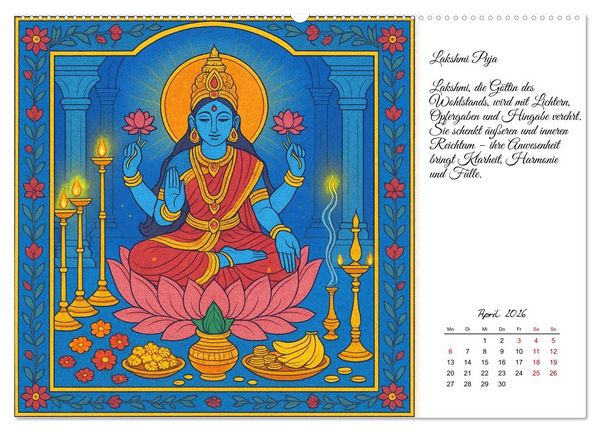 Lakshmi Puja
Lakshmi, die Göttin des
Wohlstands, wird mit Lichtern,
Opfergaben und Hingabe verehrt.
Sie schenkt äußeren und inneren
Reichtum – ihre Anwesenheit
bringt Klarheit, Harmonie
und Fülle.
April 2026
Mo Di Mi Do Fr Sa So
1 2 3 4 5
6 7 8 9 10 11 12
13 14 15 16 17 18 19
20 21 22 23 24 25 26
27 28 29 30